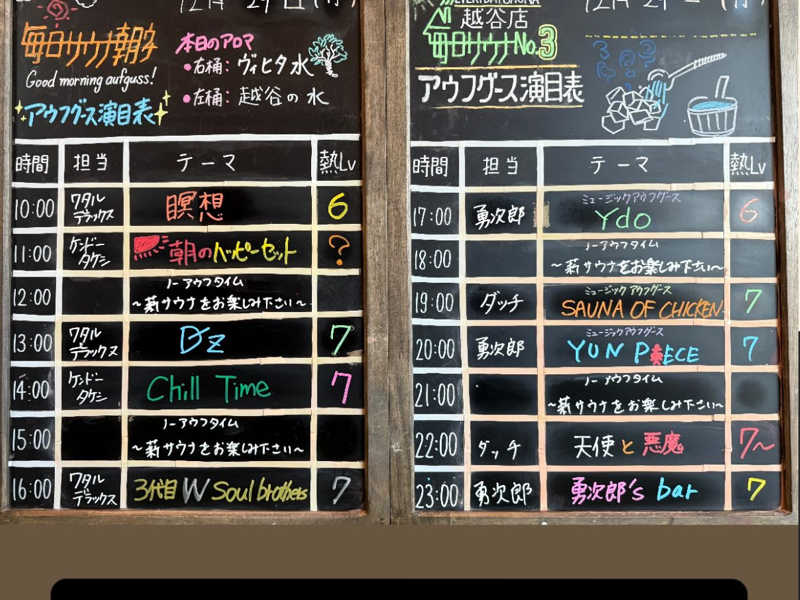 毎日サウナ朝名
Good morning aufguss!
アウフグース演目表
本日のアロマ
●右桶：ヴィヒタ水
●左桶：越谷の水
時間 担当 テーマ 熱Lv
10:00 ワタルデラックス 瞑想 6
11:00 ケンドータケシ 朝のハッピーセット ?
12:00 ノーアウフタイム
〜薪サウナをお楽しみ下さい〜
13:00 ワタルデラックス D'z 7
14:00 ケンドータケシ Chill Time 7
15:00 ノーアウフタイム
〜薪サウナをお楽しみ下さい〜
16:00 ワタルデラックス 3代目 W Soul brothers 7
越谷店
毎日サウナ No.3
アウフグース演目表
時間 担当 テーマ 熱Lv
ミュージックアウフグース
17:00 勇次郎 Ydo 6
18:00 ノーアウフタイム
〜薪サウナをお楽しみ下さい〜
ミュージックアウフグース
19:00 ダッチ SAUNA OF CHICKEN 7
ミュージックアウフグース
20:00 勇次郎 YUN PIECE 7
21:00 ノーアウフタイム
〜薪サウナをお楽しみ下さい〜
22:00 ダッチ 天使と悪魔 7〜
23:00 勇次郎 勇次郎's bar 7